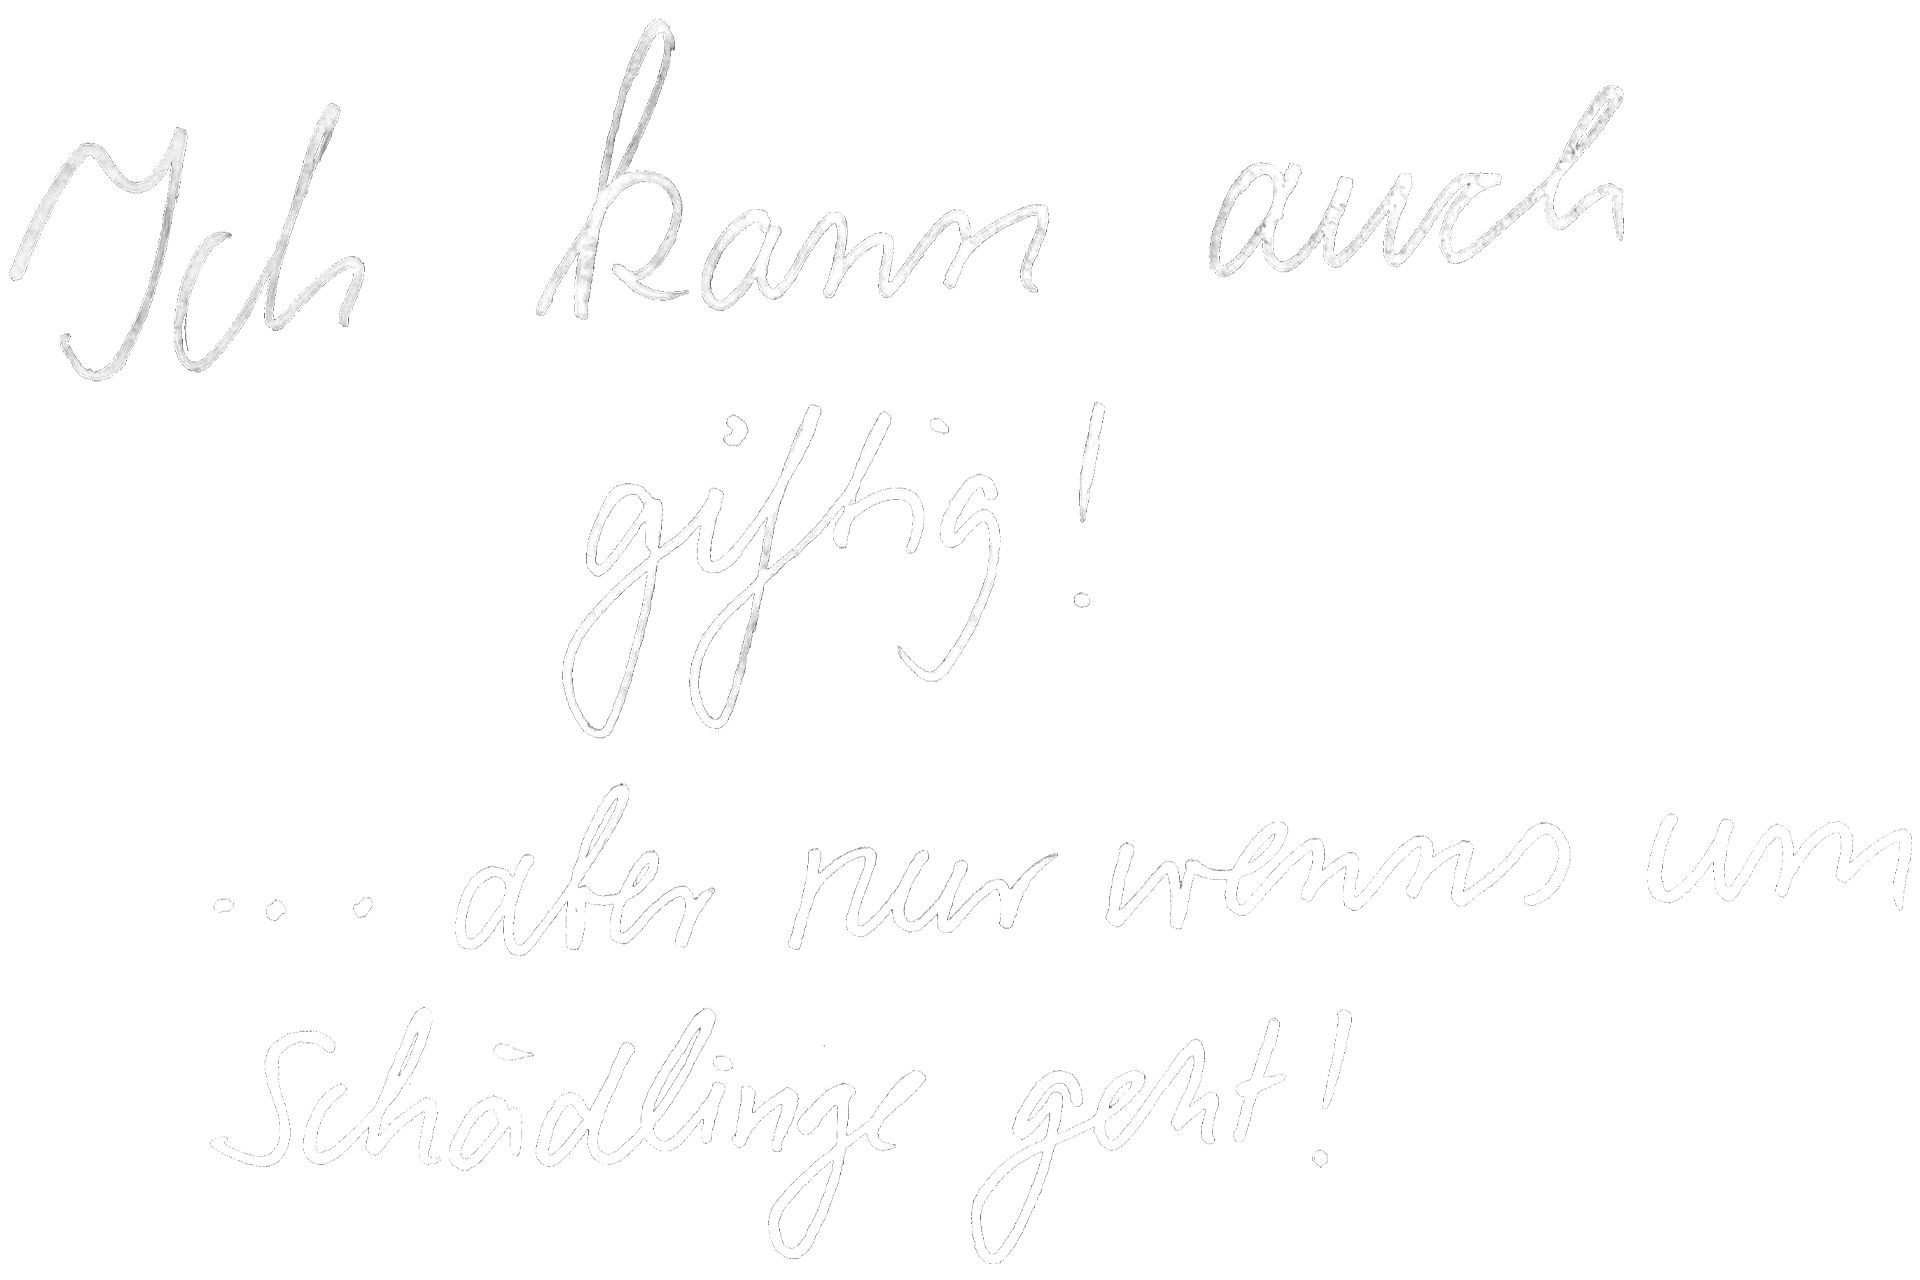 Ich kann auch
giftig!
... aber nur wenns um
Schädlinge geht!